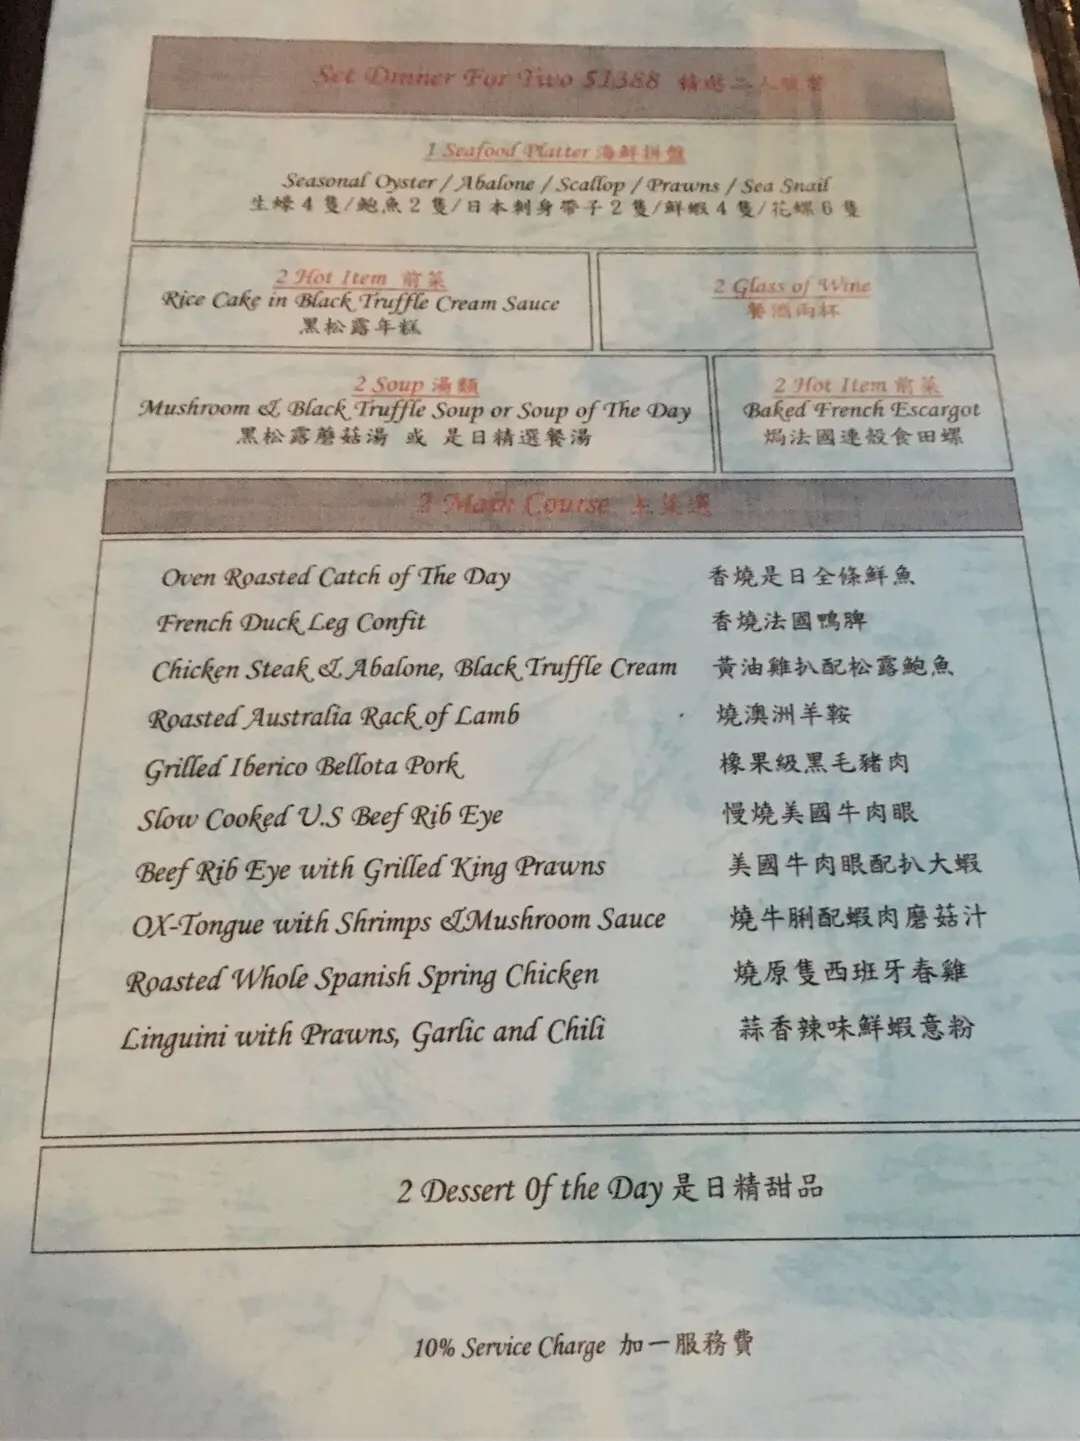 Set Dinner For Two $1388 精選二人晚餐
1 Seafood Platter 海鮮拼盤
Seasonal Oyster / Abalone / Scallop / Prawns / Sea Snail
生蠔 4 隻/鮑魚 2 隻/日本刺身帶子 2 隻/鮮蝦 4 隻/花螺 6 隻
2 Hot Item 前菜
Rice Cake in Black Truffle Cream Sauce
黑松露年糕
2 Glass of Wine
餐酒兩杯
2 Soup 湯類
Mushroom & Black Truffle Soup or Soup of The Day
黑松露蘑菇湯 或 是日精選餐湯
2 Hot Item 前菜
Baked French Escargot
焗法國連殼食田螺
2 Main Course 主菜選
Oven Roasted Catch of The Day 香燒是日全條鮮魚
French Duck Leg Confit 香燒法國鴨脾
Chicken Steak & Abalone, Black Truffle Cream 黃油雞扒配松露鮑魚
Roasted Australia Rack of Lamb 燒澳洲羊鞍
Grilled Iberico Bellota Pork 橡果級黑毛豬肉
Slow Cooked U.S Beef Rib Eye 慢燒美國牛肉眼
Beef Rib Eye with Grilled King Prawns 美國牛肉眼配扒大蝦
OX-Tongue with Shrimps &Mushroom Sauce 燒牛脷配蝦肉磨菇汁
Roasted Whole Spanish Spring Chicken 燒原隻西班牙春雞
Linguini with Prawns, Garlic and Chili 蒜香辣味鮮蝦意粉
2 Dessert Of the Day 是日精甜品
10% Service Charge 加一服務費